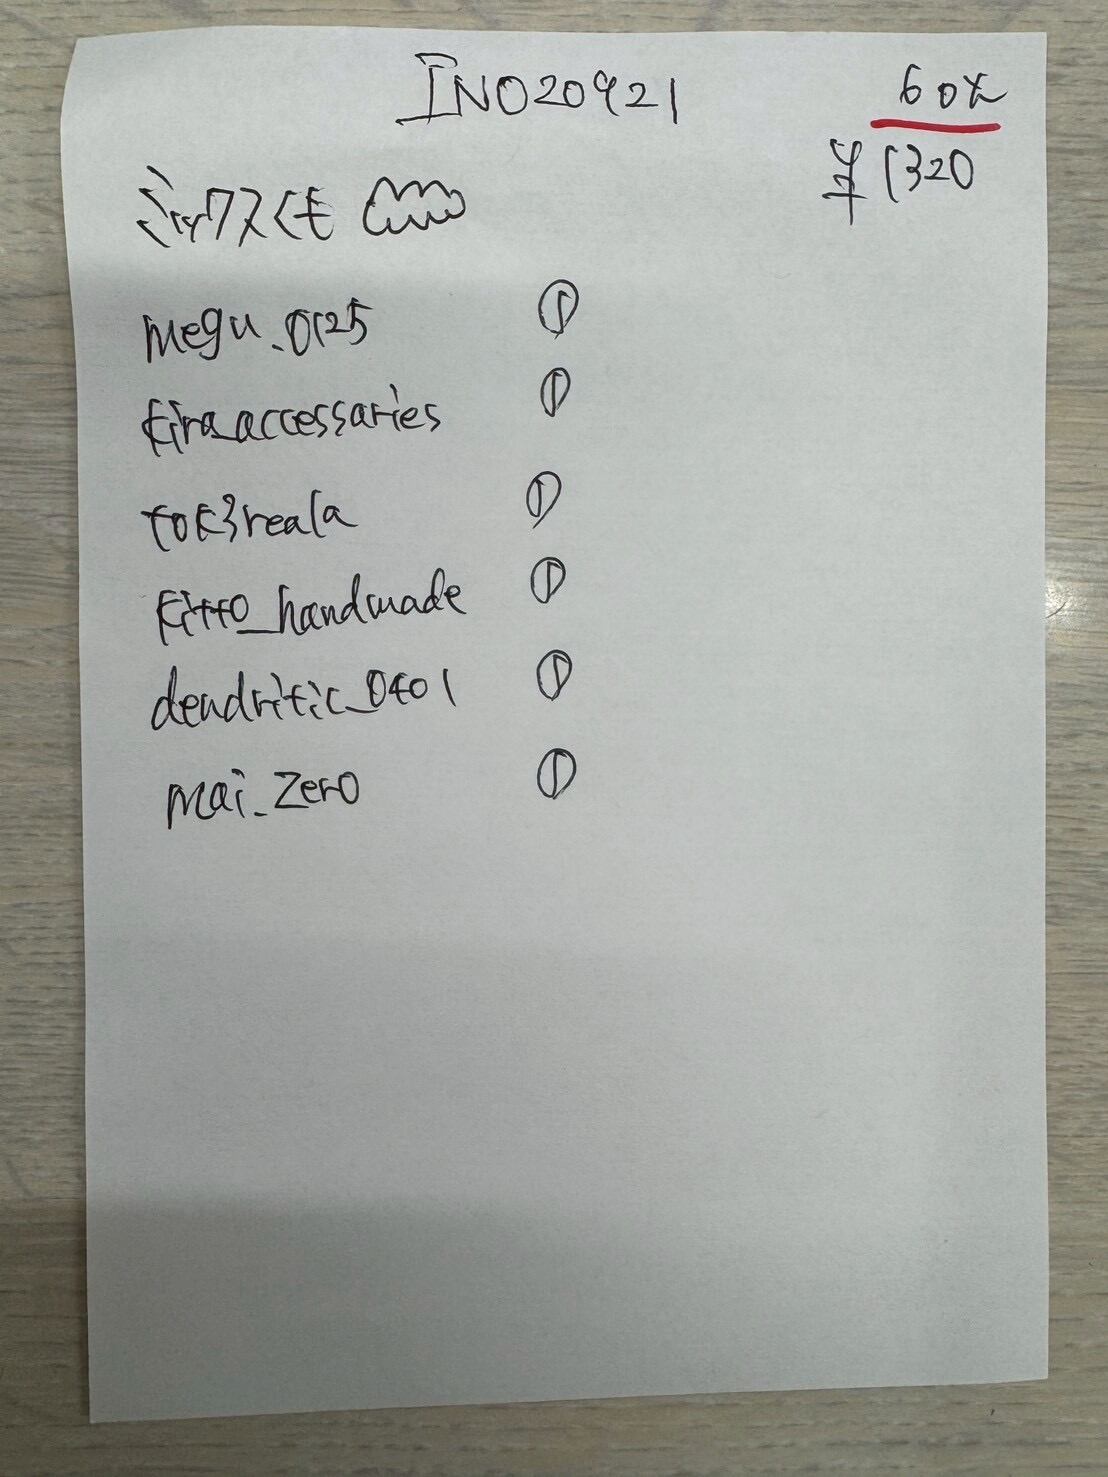 INO20921
60%
¥1320
ミックスくも
megu_0125
kira_accessaries
tok3reala
kitto_handmade
dendritic_0401
mai_zero
① 
①
①
①
①
①